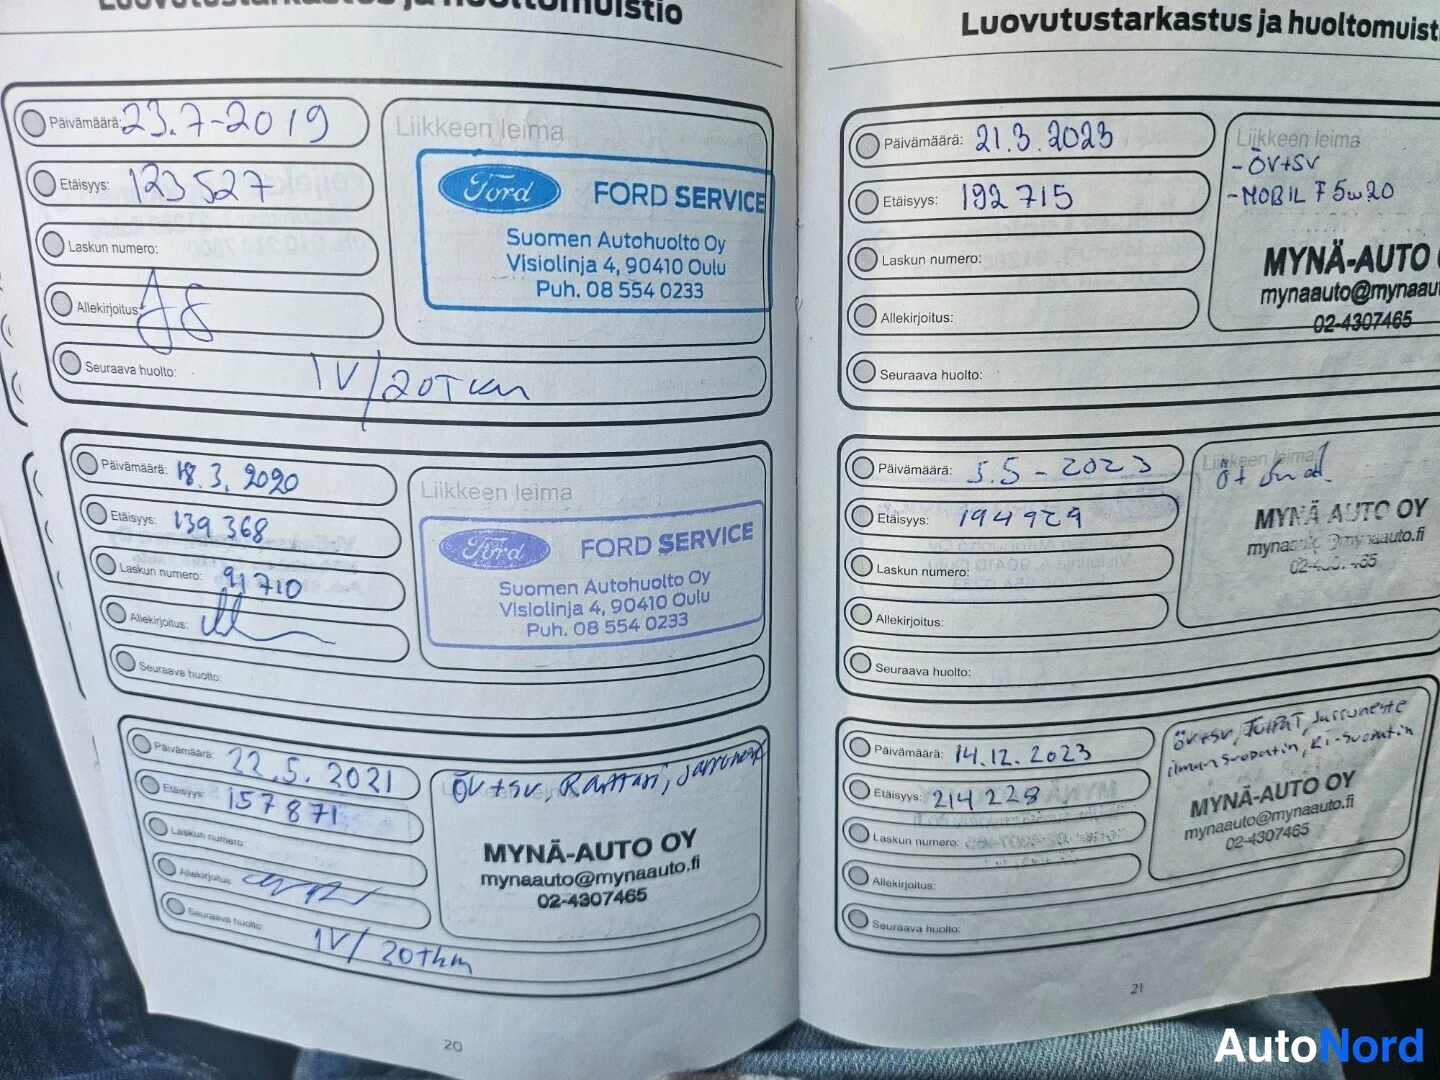 Luovutustarkastus ja huoltomuistio
Päivämäärä: 23.7-2019
Etäisyys: 123527
Laskun numero:
Allekirjoitus:
Seuraava huolto: 1V/20Tkm
Liikkeen leima
Ford FORD SERVICE
Suomen Autohuolto Oy
Visiolinja 4, 90410 Oulu
Puh. 08 554 0233
Päivämäärä: 18.3.2020
Etäisyys: 139368
Laskun numero: 91710
Allekirjoitus:
Seuraava huolto:
Liikkeen leima
Ford FORD SERVICE
Suomen Autohuolto Oy
Visiolinja 4, 90410 Oulu
Puh. 08 554 0233
Päivämäärä: 22.5.2021
Etäisyys: 157871
Laskun numero:
Allekirjoitus:
Seuraava huolto: 1V/20tkm
ÖV+SV, Raittari, jarruneste
MYNÄ-AUTO OY
mynaauto@mynaauto.fi
02-4307465
20
Luovutustarkastus ja huoltomuist
Päivämäärä: 21.3.2023
Etäisyys: 192715
Laskun numero:
Allekirjoitus:
Seuraava huolto:
Liikkeen leima
-ÖV+SV
-MOBIL F 5W20
MYNÄ-AUTO
mynaauto@mynaau
02-4307465
Päivämäärä: 5.5-2023
Etäisyys: 194929
Laskun numero:
Allekirjoitus:
Seuraava huolto:
Liikkeen leima
MYNÄ AUTO OY
Päivämäärä: 14.12.2023
Etäisyys: 214228
Laskun numero:
Allekirjoitus:
Seuraava huolto:
ÖV+SV, TULPAT, Jarruneste
ilmansuodatin, RI-Suodatin
MYNÄ-AUTO OY
mynaauto@mynaauto.fi
02-4307465
21
AutoNord